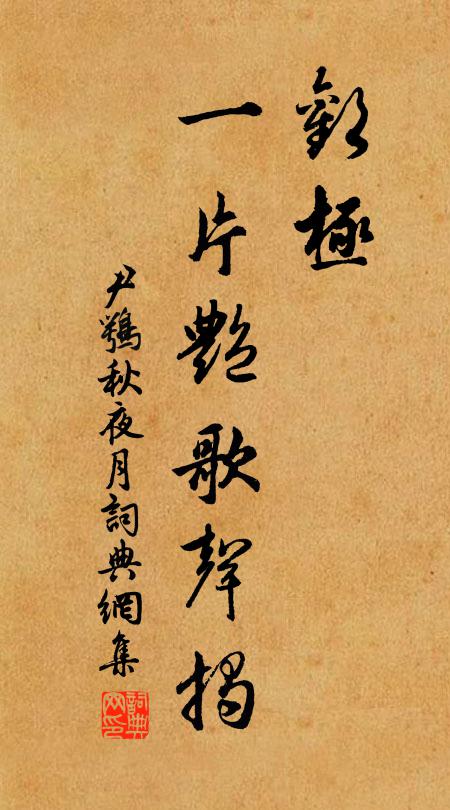 歡極
一片艷歌聲揭
尹鶚秋夜月詞典網集
詞典网印